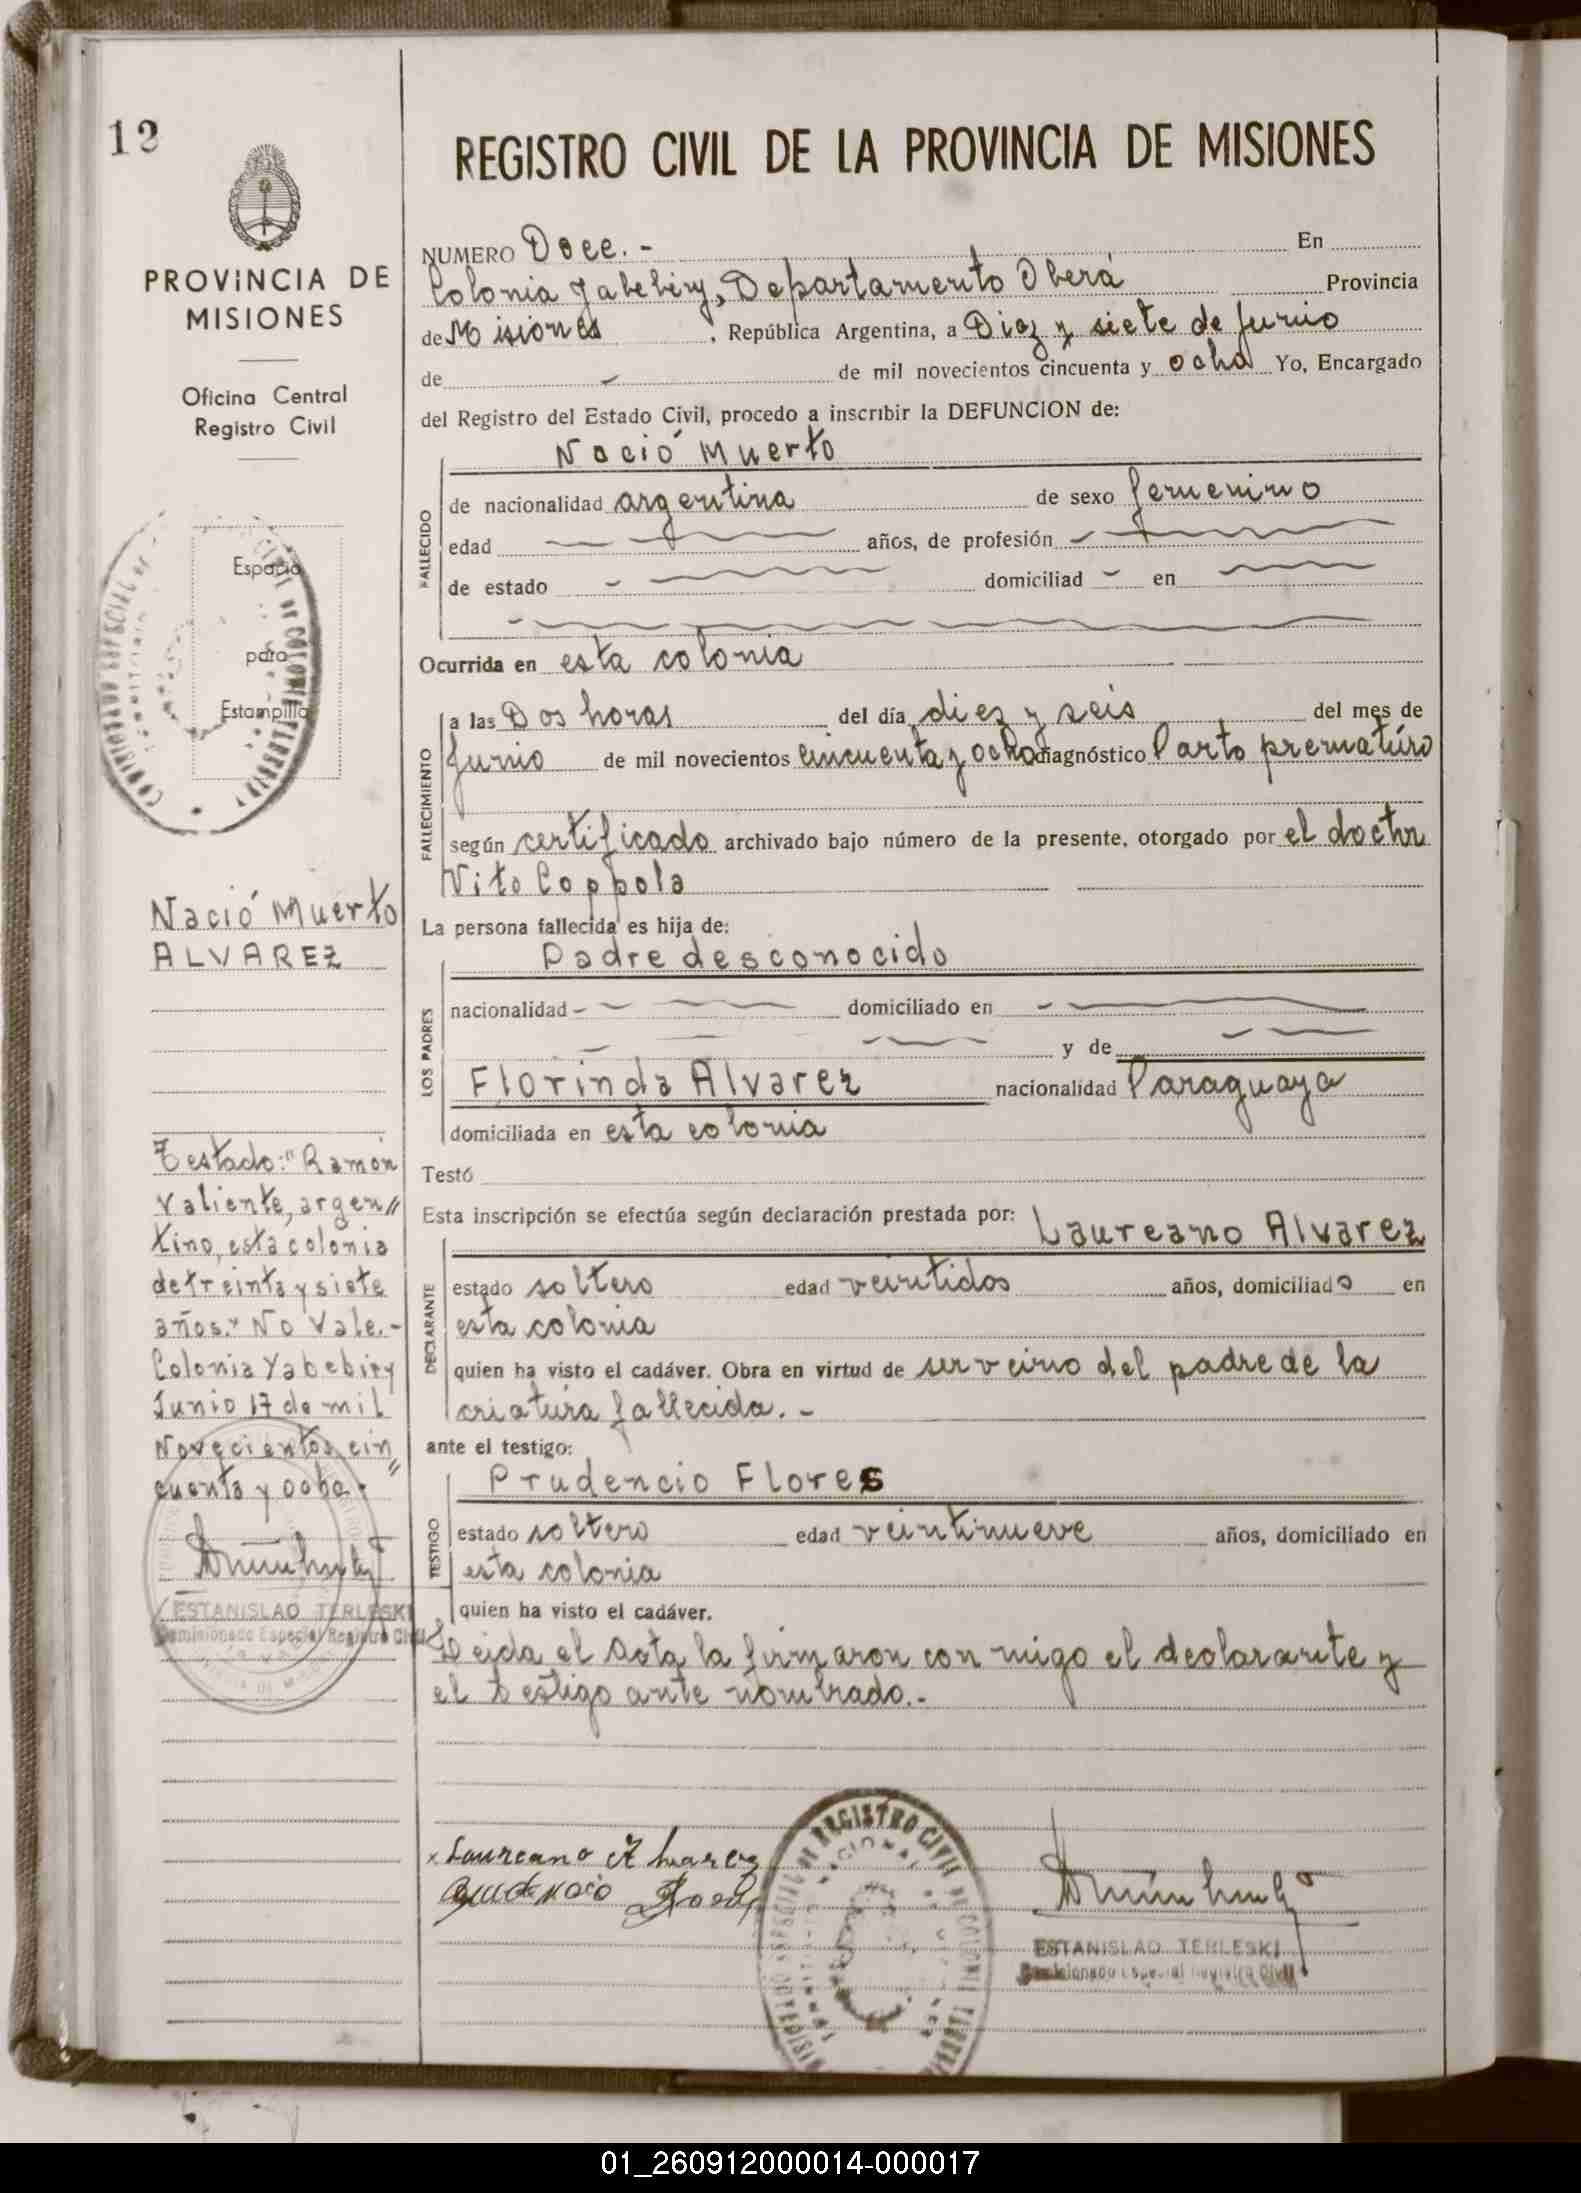 12
PROVINCIA DE
MISIONES
Oficina Central
Registro Civil
Espacio
para
Estampilla
Nació Muerto
ALVAREZ
Testado: "Ramón
Valiente, argen//
tino, esta colonia
de treinta y siete
años." No Vale.-
Colonia Yabebiry
Junio 17 de mil
Novecientos cin
cuenta y ocho.
ESTANISLAO TERLESKI
Comisionado Especial Registro Civil
REGISTRO CIVIL DE LA PROVINCIA DE MISIONES
NUMERO Doce. - En
Colonia Yabebiry, Departamento Oberá Provincia
de Misiones , República Argentina, a Diez y siete de Junio
de de mil novecientos cincuenta y ocho Yo, Encargado
del Registro del Estado Civil, procedo a inscribir la DEFUNCION de:
Nació Muerto
FALLECIDO
de nacionalidad argentina de sexo femenino
edad años, de profesión
de estado domiciliad en
Ocurrida en esta colonia
FALLECIMIENTO
a las Dos horas del día diez y seis del mes de
Junio de mil novecientos cincuenta y ocho diagnóstico Parto prematúro
según certificado archivado bajo número de la presente, otorgado por el doctor
Vito Coppola
La persona fallecida es hija de:
Padre desconocido
LOS PADRES
nacionalidad domiciliado en
y de
Florinda Alvarez nacionalidad Paraguaya
domiciliada en esta colonia
Testó
Esta inscripción se efectúa según declaración prestada por: Laureano Alvarez
DECLARANTE
estado soltero edad veintidos años, domiciliado en
esta colonia
quien ha visto el cadáver. Obra en virtud de ser vecino del padre de la
criatúra fallecida. -
ante el testigo:
Prudencio Flores
TESTIGO
estado soltero edad veintinueve años, domiciliado en
esta colonia
quien ha visto el cadáver.
Leida el Acta la firmaron con migo el declarante y
el testigo ante nombrado.-
x Laureano Alvarez
ESTANISLAO TERLESKI
Comisionado Especial Registro Civil
01_260912000014-000017